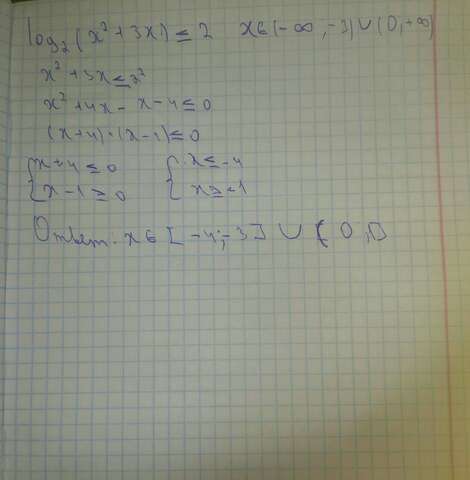 log₂(x² + 3x) ≤ 2 x∈(-∞, -3)∪(0, +∞)
x² + 3x ≤ 2²
x² + 4x - x - 4 ≤ 0
(x+4)·(x-1) ≤ 0
{ x + 4 ≤ 0 { x ≤ -4
{ x - 1 ≥ 0 { x ≥ 1
Ответ: x ∈ [-4; -3] ∪ (0, 1]